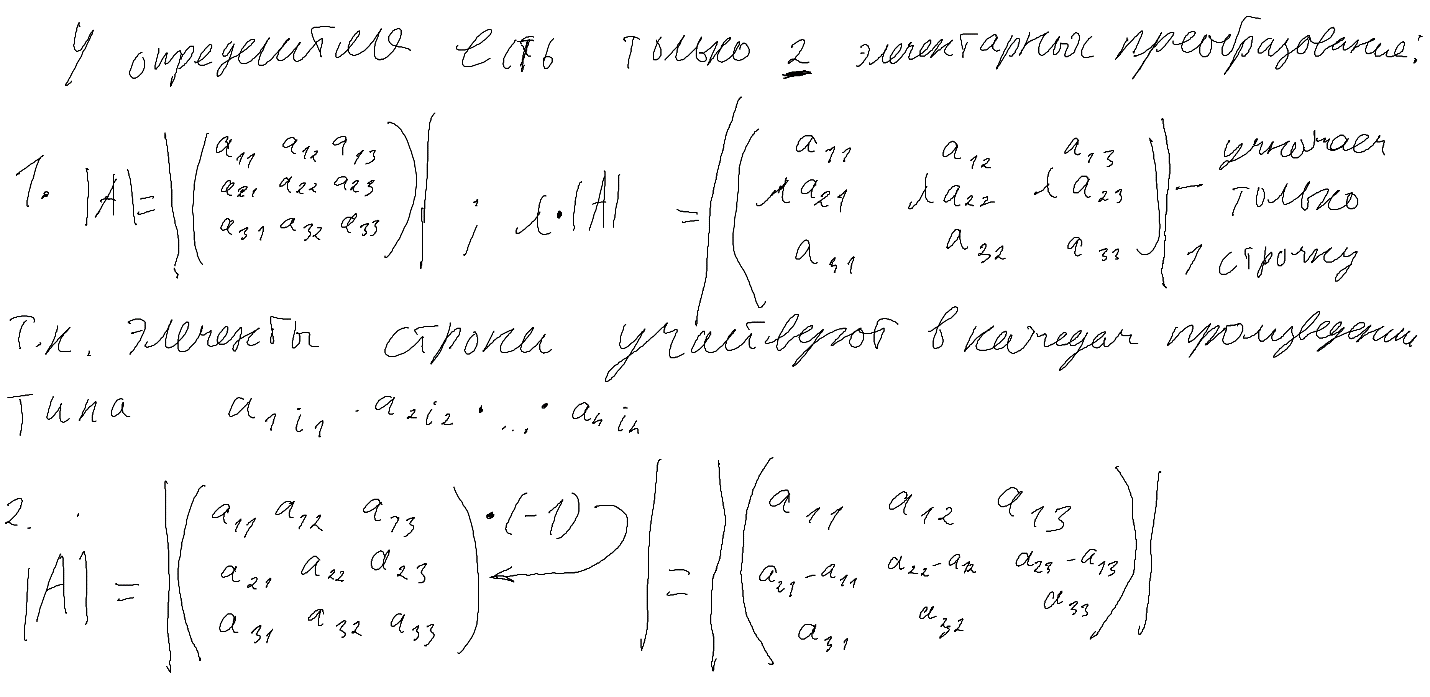 У определителя есть только 2 элементарных преобразование:
1. |A| = |(a₁₁ a₁₂ a₁₃
a₂₁ a₂₂ a₂₃
a₃₁ a₃₂ a₃₃)| ; λ·|A| = |(a₁₁ a₁₂ a₁₃
λa₂₁ λa₂₂ λa₂₃
a₃₁ a₃₂ a₃₃)| — умножаем
только
1 строчку
Т.к. элементы строки участвуют в каждом произведении
типа a₁ᵢ₁ · a₂ᵢ₂ · ... · aₙᵢₙ
2.
|A| = |(a₁₁ a₁₂ a₁₃
a₂₁ a₂₂ a₂₃
a₃₁ a₃₂ a₃₃) ·(-1)| = |(a₁₁ a₁₂ a₁₃
a₂₁-a₁₁ a₂₂-a₁₂ a₂₃-a₁₃
a₃₁ a₃₂ a₃₃)|